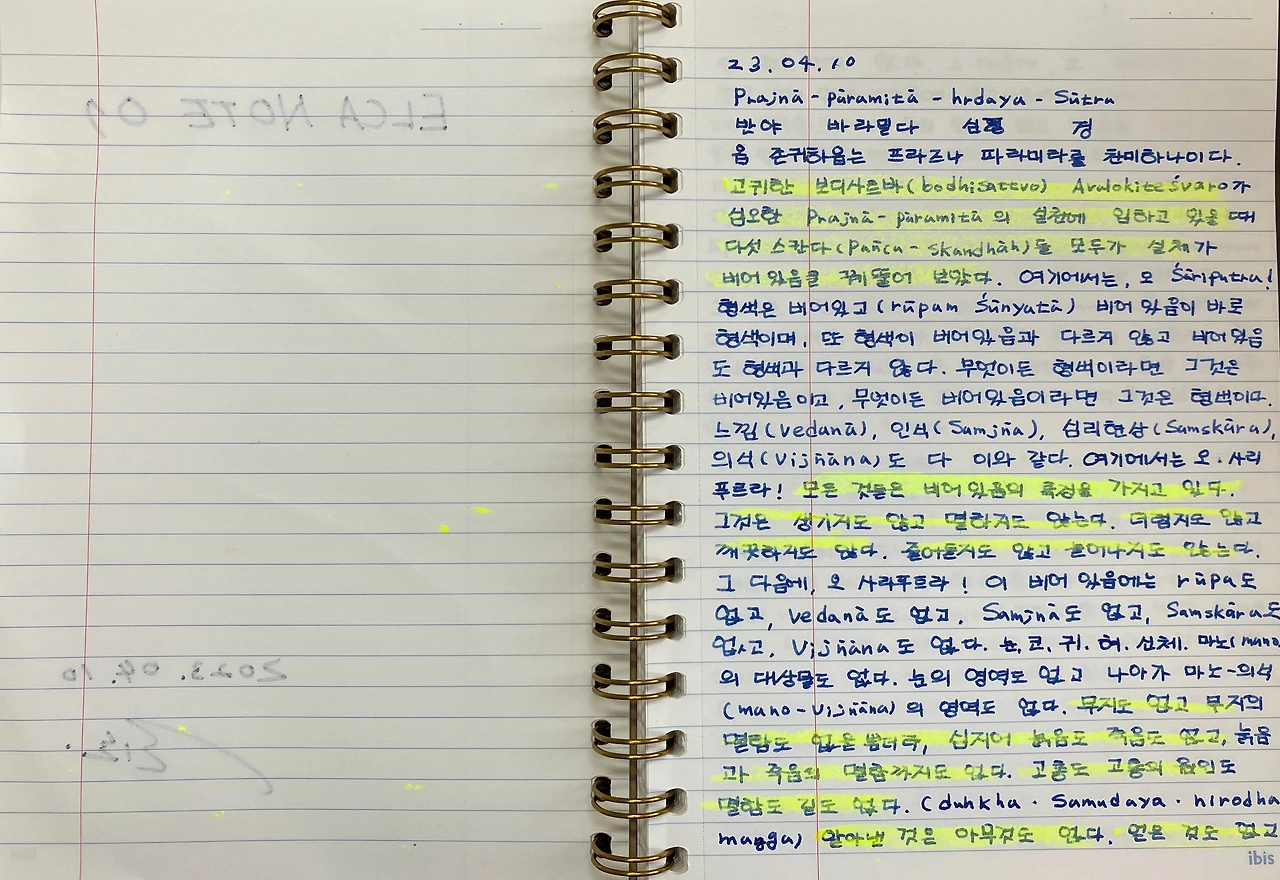 ELCA NOTE 09
2023. 04. 10
23.04.10
Prajnā - pāramitā - hrdaya - Sūtra
반야 바라밀다 심 경
옴 존귀하옵는 프라즈나 파라미타를 찬미하나이다.
고귀한 보디사트바(bodhisattvo) Avalokiteśvaro가
심오한 Prajnā - pāramitā의 실천에 임하고 있을 때
다섯 스칸다(Pañca - skandhāh)들 모두가 실체가
비어 있음을 꿰뚫어 보았다. 여기에서는, 오 Śāriputra!
형색은 비어있고(rūpam śūnyatā) 비어 있음이 바로
형색이며, 또 형색이 비어있음과 다르지 않고 비어있음
도 형색과 다르지 않다. 무엇이든 형색이라면 그것은
비어있음이고, 무엇이든 비어있음이라면 그것은 형색이다.
느낌(vedanā), 인식(Samjñā), 심리현상(Samskāra),
의식(Vijñāna)도 다 이와 같다. 여기에서는 오. 사리
푸트라! 모든 것들은 비어 있음의 특징을 가지고 있다.
그것은 생기지도 않고 멸하지도 않는다. 더럽지도 않고
깨끗하지도 않다. 줄어들지도 않고 늘어나지도 않는다.
그 다음에, 오 사리푸트라! 이 비어 있음에는 rūpa도
없고, vedanā도 없고, Samjnā도 없고, Samskāra도
없고, Vijñāna도 없다. 눈, 코, 귀, 혀, 신체, 마노(mano)
의 대상물도 없다. 눈의 영역도 없고 나아가 마노-의식
(mano - vijñāna)의 영역도 없다. 무지도 없고 무지의
멸함도 없을 뿐더러, 심지어 늙음도 죽음도 없고, 늙음
과 죽음의 멸함까지도 없다. 고통도 고통의 원인도
멸함도 길도 없다. (duhkha · Samudaya · nirodha
magga) 알아낸 것은 아무것도 없다. 얻은 것도 없고
ibis